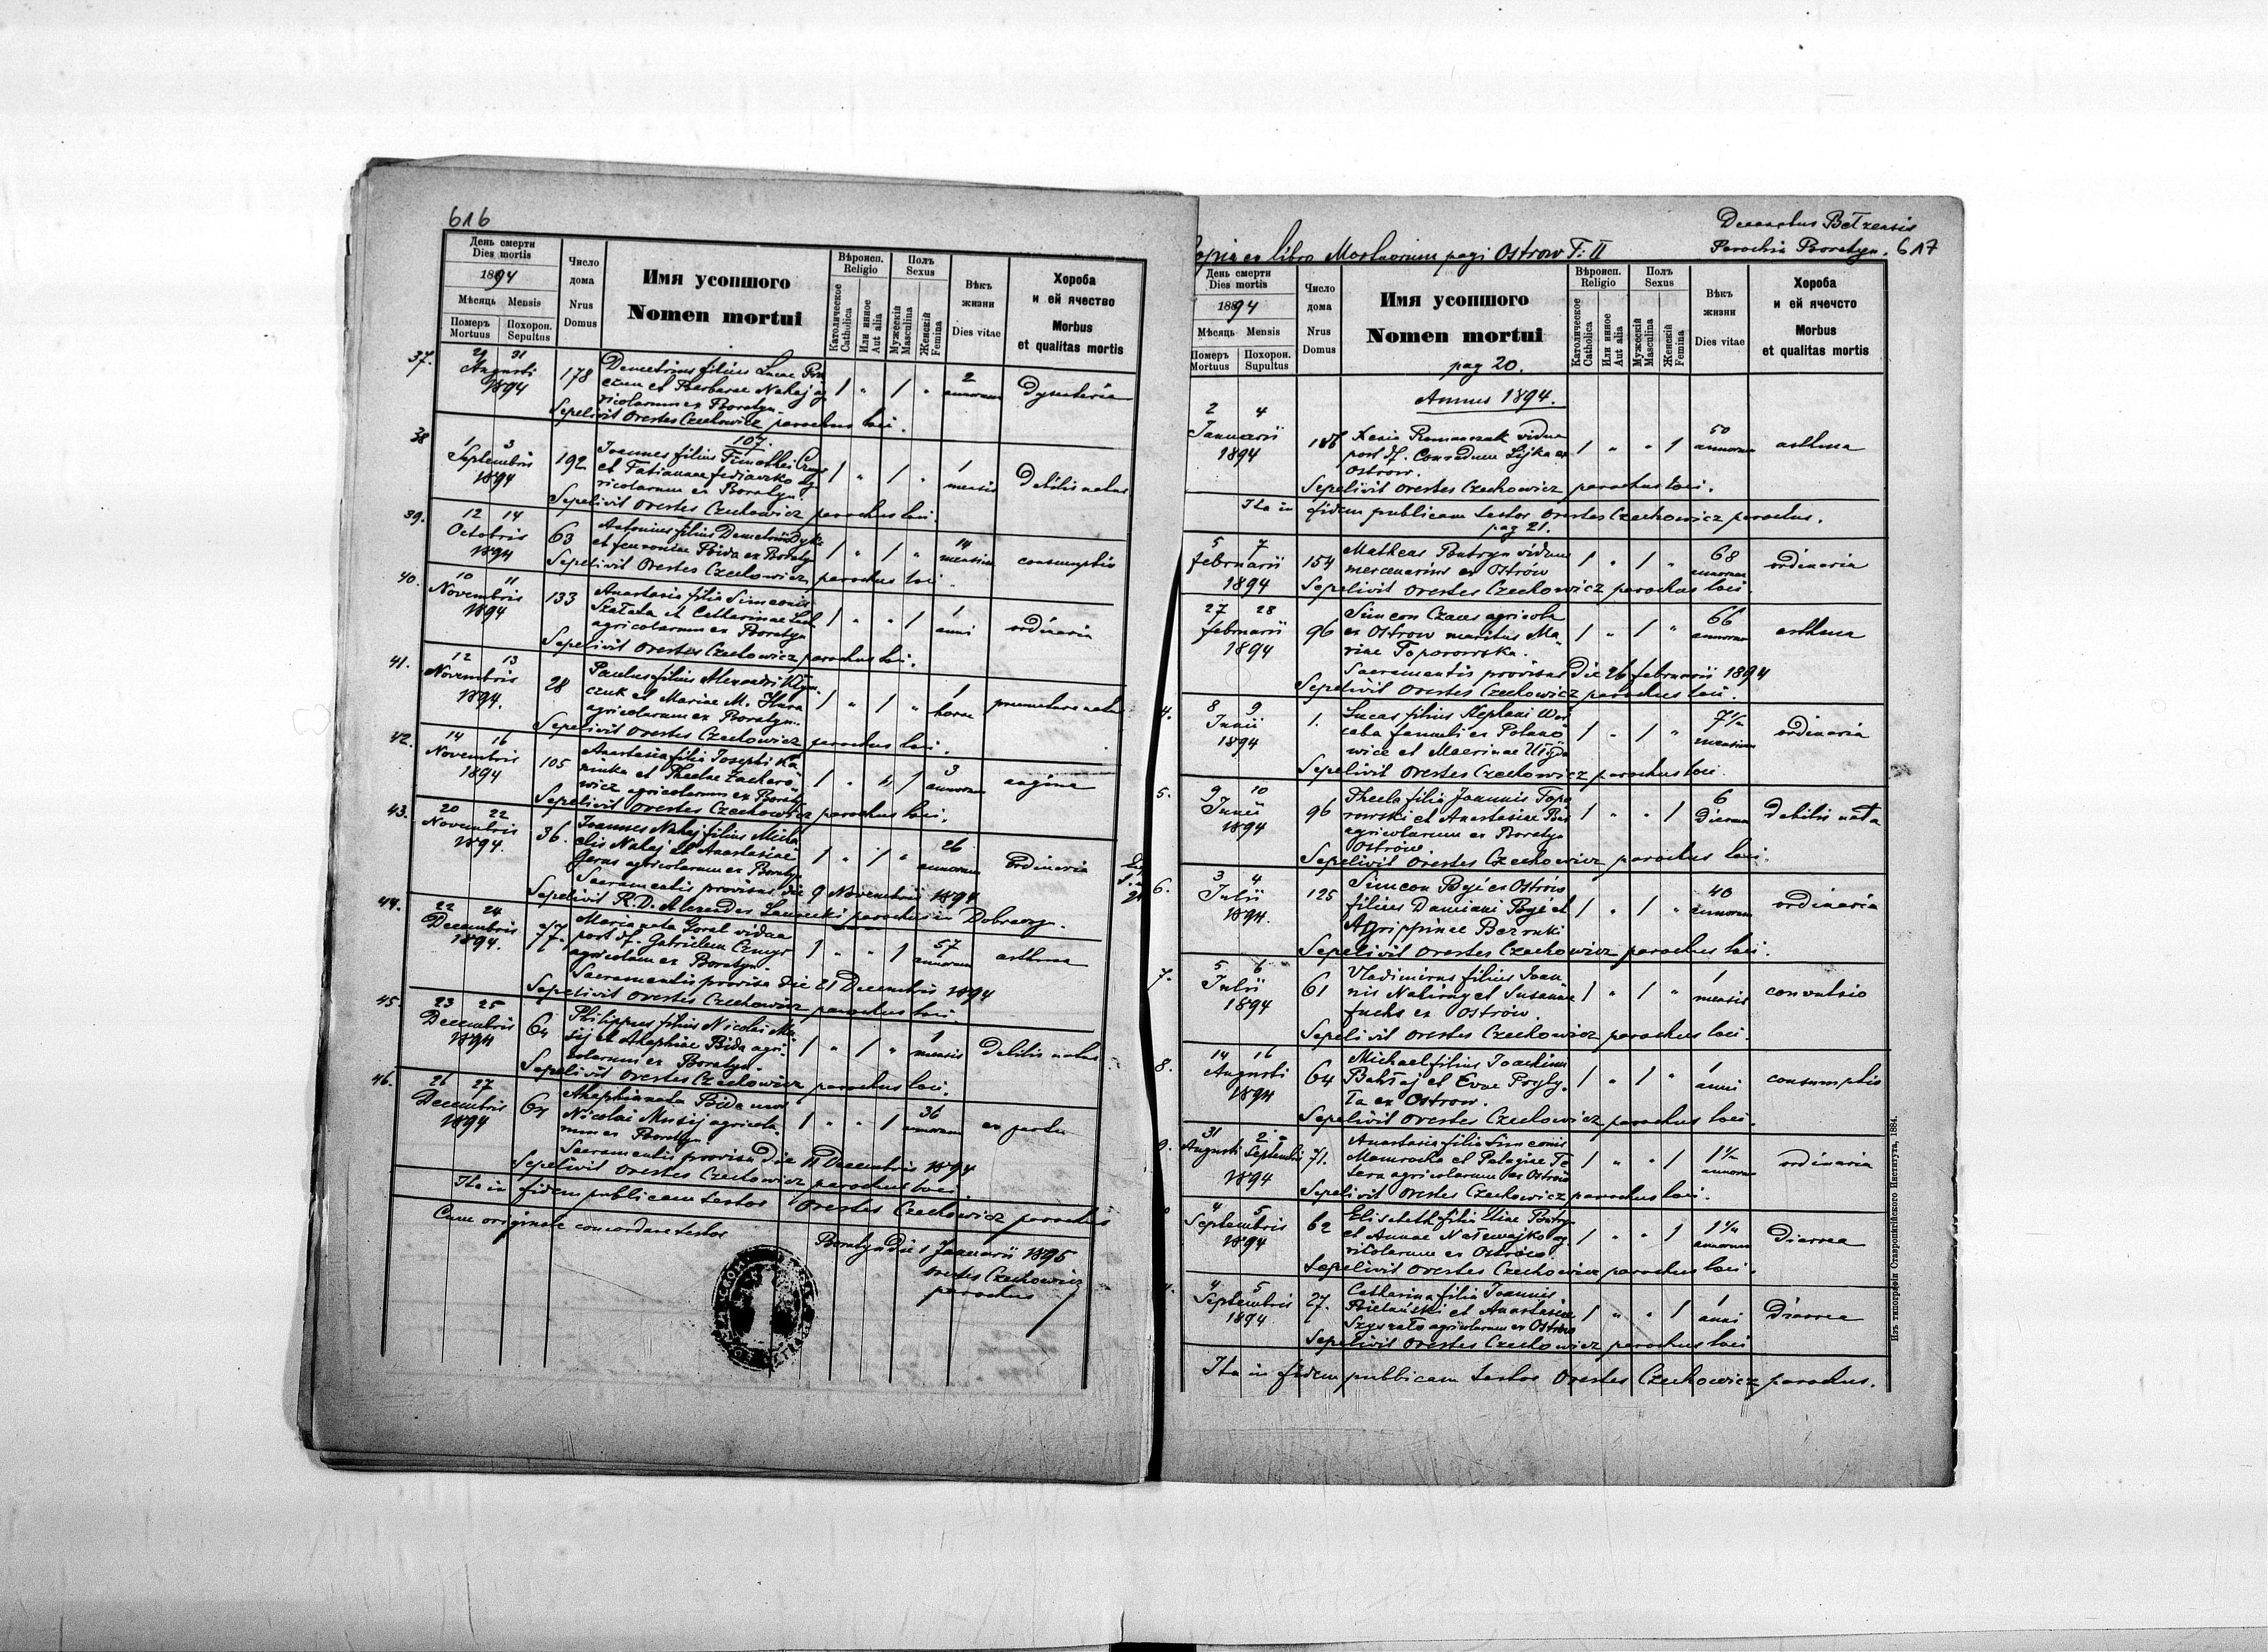 616
День смерти
Dies mortis
1894
Мѣсяць Mensis
Померъ Mortuus
Похорон. Sepultus
Число дома
Nrus Domus
Имя усопшого
Nomen mortui
Вѣроисп.
Religio
Католическое Catholica
Или инное Aut alia
Полъ
Sexus
Мужескій Masculina
Женскій Femina
Вѣкъ жизни
Dies vitae
Хороба
и ей ячество
Morbus
et qualitas mortis
37. 31 Augusti 1894 178
Demetrius filius Lucae
et Barbarae Nahaj ag
ricolarum ex Boratyn.
1 " 1 " 2 annorum Dysenteria
Sepelivit Orestes Czechowicz parochus loci.
107.
38 1 3 Septembris 1894 192
Joannes filius Timothei
et Tatianae Fediaczko ag
ricolarum ex Boratyn.
1 " 1 " 1 mensis Debilis natus
Sepelivit Orestes Czechowicz parochus loci.
39. 12 14 Octobris 1894 63
Antonius filius Demetrii Dyka
et Fevroniae Bida ex Boratyn
1 " 1 " 14 mensium consumptio
Sepelivit Orestes Czechowicz parochus loci.
40. 10 11 Novembris 1894 133
Anastasia filia Simeonis
et Catharinae
agricolarum ex Boratyn
1 " " 1 1 anni ordinaria
Sepelivit Orestes Czechowicz parochus loci.
41. 12 13 Novembris 1894. 28
Paulus filius Alexandri
czuk et Mariae M. Hura
agricolarum ex Boratyn.
1 " 1 " 1 horae praemature natus
Sepelivit Orestes Czechowicz parochus loci.
42. 14 16 Novembris 1894 105
Anastasia filia Josephi Ka
minka et Theclae Zacharo
wicz agricolarum ex Boratyn
1 " " 1 3 annorum angina
Sepelivit Orestes Czechowicz parochus loci.
43. 20 22 Novembris 1894. 36.
Joannes Nahaj filius Micha
elis Nahaj et Anastasiae
Gerus agricolarum ex Boratyn
1 " 1 " 26 annorum ordinaria
Sacramentis provisus die 9 Novembris 1894
Sepelivit R. D. Alexander parochus in
44. 22 24 Decembris 1894. 77.
Maria nata Soral vidua
post df. Gabrielem Czmyr
agricolam ex Boratyn.
1 " " 1 57 annorum asthma
Sacramentis provisa die 21 Decembris 1894
Sepelivit Orestes Czechowicz parochus loci.
45. 23 25 Decembris 1894 64
Philippus filius Nicolai Mu
sij et Ahaphiae Bida agri
colarum ex Boratyn.
1 " 1 " 1 mensis Debilis natus
Sepelivit Orestes Czechowicz parochus loci.
46. 26 27 Decembris 1894 64
Ahaphia nata Bida uxor
Nicolai Musij agricola
rum ex Boratyn
1 " " 1 36 annorum ex partu
Sacramentis provisa die Decembris 1894
Sepelivit Orestes Czechowicz parochus loci.
Ita in fidem publicam testor Orestes Czechowicz parochus
Cum originale concordare testor
Boratyn die 1 Januarii 1895
Orestes Czechowicz
parochus
Decanatus Bełzensis
Parochia Boratyn. 617
Copia ex libro Mortuorum pagi Ostrow T: II
День смерти
Dies mortis
1894
Мѣсяць Mensis
Померъ Mortuus
Похорон. Sepultus
Число дома
Nrus Domus
Имя усопшого
Nomen mortui
pag 20.
Вѣроисп.
Religio
Католическое Catholica
Или инное Aut alia
Полъ
Sexus
Мужескій Masculina
Женскій Femina
Вѣкъ жизни
Dies vitae
Хороба
и ей ячечсто
Morbus
et qualitas mortis
Annus 1894.
2 4 Januarii 1894
Xenia Romanczak vidua
post df. ex
Ostrow.
1 " " 1 50 annorum asthma
Sepelivit Orestes Czechowicz parochus loci.
Ita in fidem publicam testor Orestes Czechowicz parochus.
pag 21.
5 7 Februarii 1894 154
Matheas Butryn viduus
mercenarius ex Ostrów
1 " 1 " 68 annorum ordinaria
Sepelivit Orestes Czechowicz parochus loci.
27 28 Februarii 1894 96
Simeon Czaus agricola
ex Ostrow maritus Ma
riae Toporowska.
1 " 1 " 66 annorum asthma
Sacramentis provisus die 26 februarii 1894
Sepelivit Orestes Czechowicz parochus loci.
4. 8 9 Junii 1894 1.
Lucas filius Stephani
famuli ex
wice et Macrinae
1 " 1 " 7½ mensium ordinaria
Sepelivit Orestes Czechowicz parochus loci.
5. 9 10 Junii 1894 96
Thecla filia Joannis Topo
rowski et Anastasiae
agricolarum ex Boratyn
Ostrów
1 " " 1 6 dierum debilis nata
Sepelivit Orestes Czechowicz parochus loci.
6. 3 4 Julii 1894. 125
Simeon Być ex Ostrów
filius Damiani Być et
Agrippinae
1 " 1 " 40 annorum ordinaria
Sepelivit Orestes Czechowicz parochus loci.
7. 5 6 Julii 1894 61
Vladimirus filius Joan
nis et Susannae
Fuchs ex Ostrów.
1 " 1 " 1 mensis convulsio
Sepelivit Orestes Czechowicz parochus loci.
8. 14 16 Augusti 1894 64
Michael filius Joachimi
et Evae
ex Ostrow.
1 " 1 " 1 anni consumptio
Sepelivit Orestes Czechowicz parochus loci.
9. 31 Augusti 2 Septembris 1894 71.
Anastasia filia Simeonis
et Pelagiae
agricolarum ex Ostrów
1 " " 1 1½ annorum ordinaria
Sepelivit Orestes Czechowicz parochus loci.
4 5 Septembris 1894 62
Elisabeth filia Eliae Butryn
et Annae Nalewajko ag
ricolarum ex Ostrów.
1 " " 1 annorum Diarrea
Sepelivit Orestes Czechowicz parochus loci.
4 5 Septembris 1894 27.
Catharina filia Joannis
Bielański et Anastasiae
agricolarum ex Ostrów
1 " " 1 1 anni Diarrea
Sepelivit Orestes Czechowicz parochus loci
Ita in fidem publicam testor Orestes Czechowicz parochus.
Изъ типографіи Ставропигійского Института, 1884.